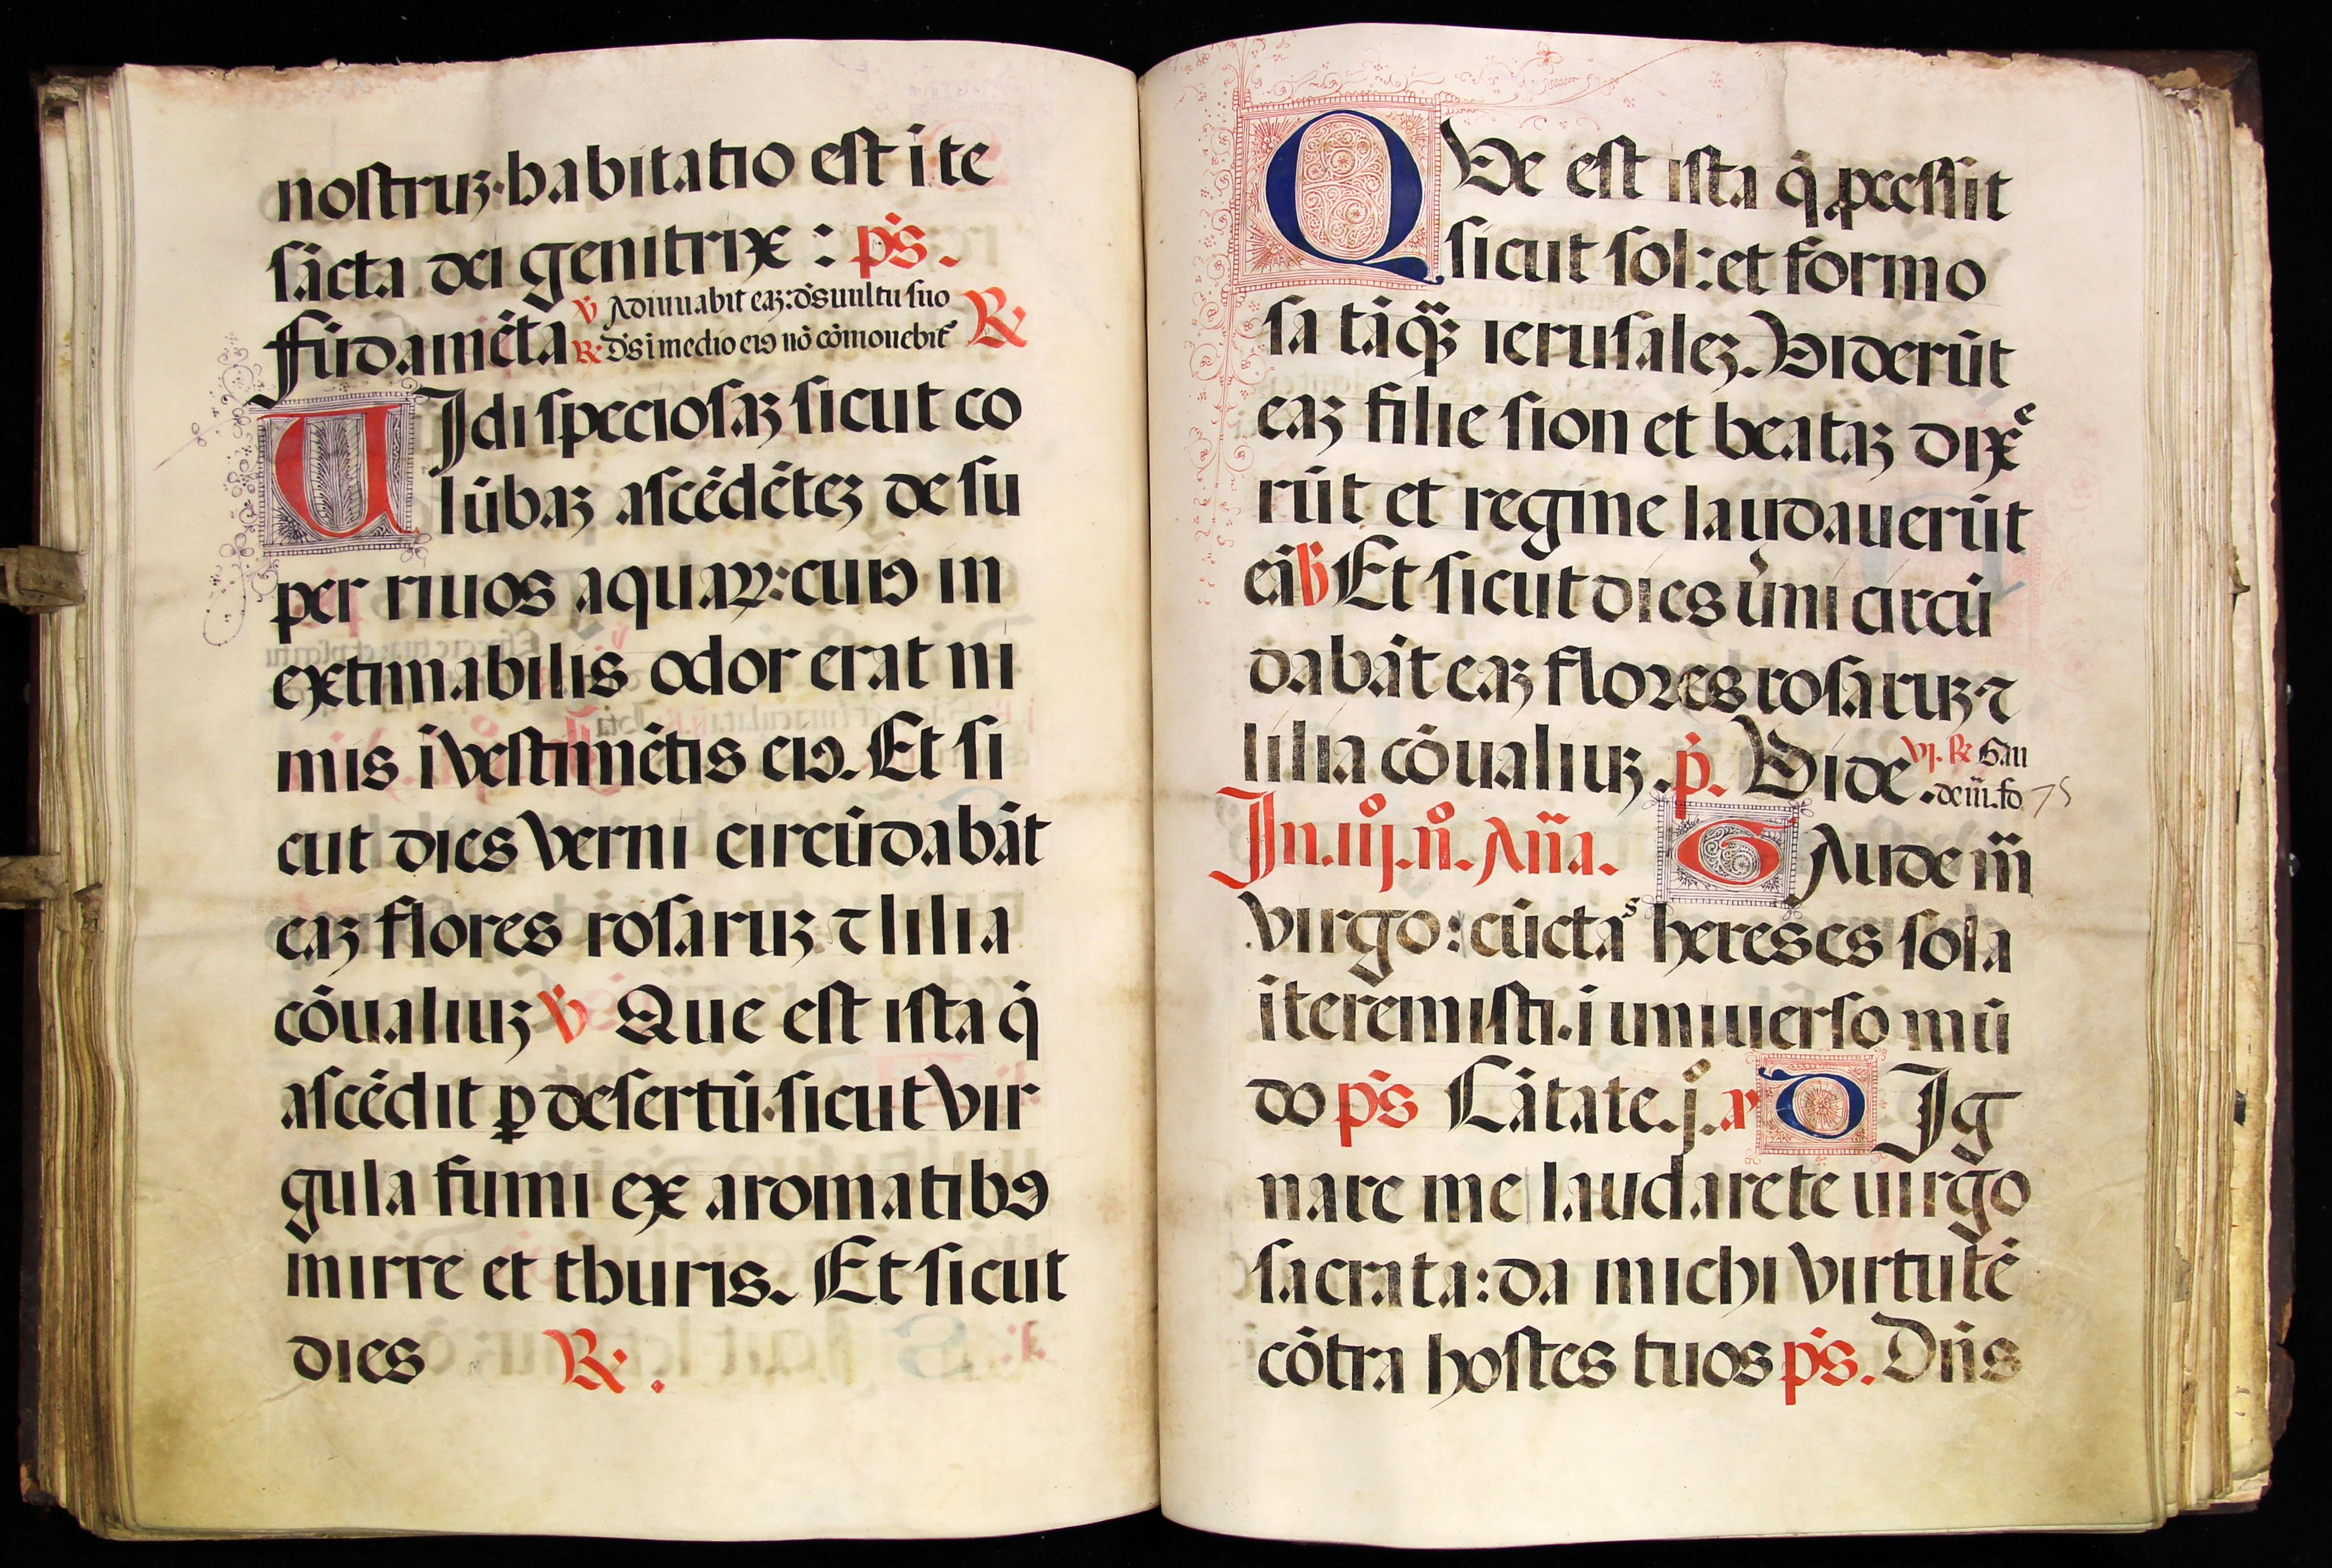 nostruꝫ·habitatio est ī te
sācta dei genitrix : p̄s.
fūdamēta ℣ Adiuuabit eaꝫ: d̄s uultu suo ℟
℟ d̄s ī medio eiꝰ nō cōmouebit᷑
VJdi speciosaꝫ sicut co
lūbaꝫ ascēdēteꝫ de su
per riuos aquaꝝ: cuiꝰ in
extimabilis odor erat ni
mis ī vestimētis eiꝰ. Et si
cut dies verni circūdabāt
eaꝫ flores rosaruꝫ ⁊ lilia
cōualiuꝫ ℣ Que est ista q̄
ascēdit ꝑ desertū·sicut vir
gula fumi ex aromatibꝰ
mirre et thuris. Et sicut
dies ℟.
QVe est ista q̄ ꝓcessit
sicut sol: et formo
sa tāqꝫ ierusaleꝫ. Viderūt
eaꝫ filie sion et beataꝫ dixe
rūt et regine laudauerūt
eā ℣ Et sicut dies v̓ni circū
dabāt eaꝫ flores rosaruꝫ ⁊
lilia cōualiuꝫ. p̄. Vide. vj. ℟ Gau
de iii. fo. 75
Jn. iij. n̊. Añā. GAude m̄
virgo: cūctas hereses sola
īteremisti. ī uniuerso mū
do p̄s Cātate. j̊. aꝛ DJg
nare me laudare te uirgo
sacrata: da michi virtutē
cōtra hostes tuos p̄s. Dn̄s